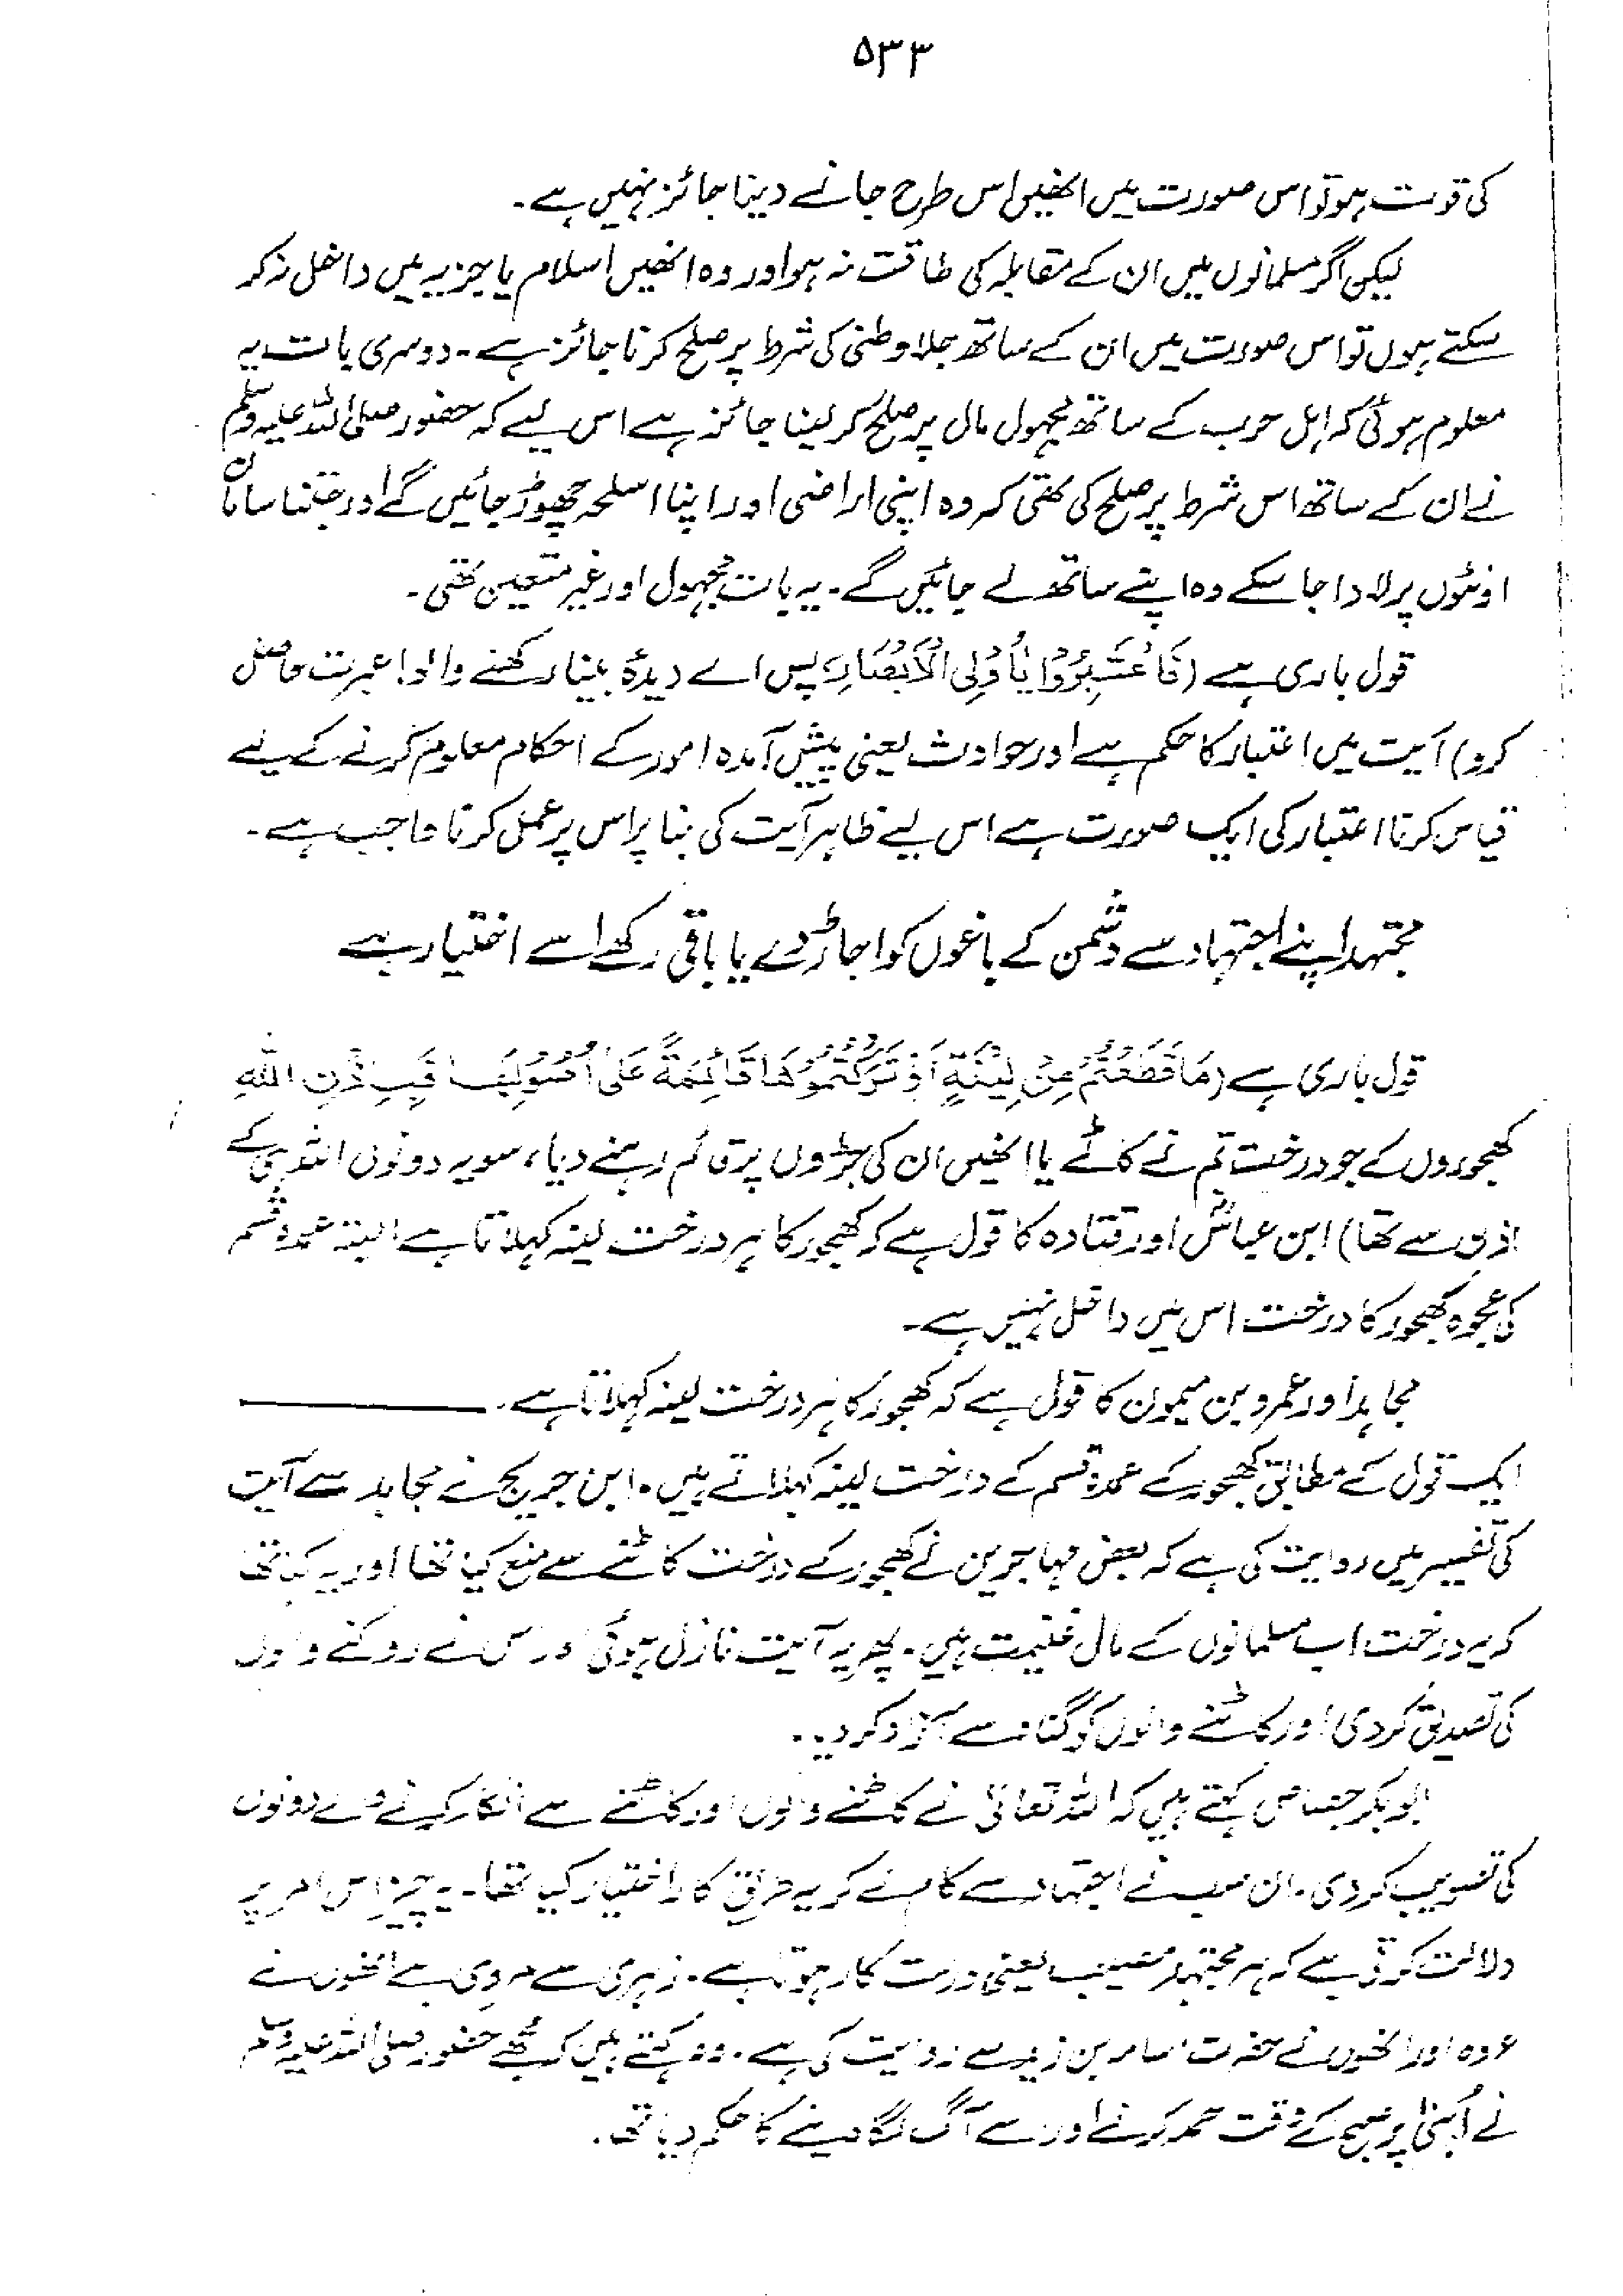 ۵۳۳
کی قوت ہو تو اس صورت میں انھیں اس طرح جانے دینا جائز نہیں ہے۔
لیکن اگر مسلمانوں میں ان کے مقابلہ کی طاقت نہ ہو اور وہ انھیں اسلام یا جزیہ میں داخل نہ کر
سکتے ہوں تو اس صورت میں ان کے ساتھ جلاوطنی کی شرط پر صلح کرنا جائز ہے۔ دوسری بات یہ
معلوم ہوئی کہ اہل حرب کے ساتھ مجہول مال پر صلح کر لینا جائز ہے اس لیے کہ حضور صلی اللہ علیہ وسلم
نے ان کے ساتھ اس شرط پر صلح کی تھی کہ وہ اپنی اراضی اور اپنا اسلحہ چھوڑ جائیں گے اور جتنا سامان
اونٹوں پر لادا جا سکے وہ اپنے ساتھ لے جائیں گے۔ یہ بات مجہول اور غیر متعین تھی۔
قول باری ہے (فَاعْتَبِرُوْا یٰاُولِی الْاَبْصَارِ، پس اے دیدۂ بینا رکھنے والو! عبرت حاصل
کرو) آیت میں اعتبار کا حکم ہے اور حوادث یعنی پیش آمدہ امور کے احکام معلوم کرنے کے لیے
قیاس کرنا اعتبار کی ایک صورت ہے اس لیے ظاہر آیت کی بنا پر اس پر عمل کرنا واجب ہے۔
مجتہد اپنے اجتہاد سے دشمن کے باغوں کو اجاڑ دے یا باقی رکھے اسے اختیار ہے
قول باری ہے (مَا قَطَعْتُمْ مِنْ لِیْنَةٍ اَوْ تَرَکْتُمُوْهَا قَائِمَةً عَلٰی اُصُوْلِهَا فَبِاِذْنِ اللّٰهِ
کھجوروں کے جو درخت تم نے کاٹے یا انھیں ان کی جڑوں پر قائم رہنے دیا، سو یہ دونوں اللہ ہی کے
اذن سے تھا) ابن عباسؓ اور قتادہ کا قول ہے کہ کھجور کا ہر درخت لینہ کہلاتا ہے البتہ عمدہ قسم
کی عجوہ کھجور کا درخت اس میں داخل نہیں ہے۔
مجاہد اور عمرو بن میمون کا قول ہے کہ کھجور کا ہر درخت لینہ کہلاتا ہے۔
ایک قول کے مطابق کھجور کے عمدہ قسم کے درخت لینہ کہلاتے ہیں۔ ابن جریج نے مجاہد سے آیت
کی تفسیر میں روایت کی ہے کہ بعض مہاجرین نے کھجور کے درخت کاٹنے سے منع کیا تھا اور یہ کہا تھا
کہ یہ درخت اب مسلمانوں کے مال غنیمت ہیں۔ پھر یہ آیت نازل ہوئی اور اس نے روکنے والوں
کی تصدیق کر دی اور کاٹنے والوں کو گناہ سے آزاد کر دیا۔
ابوبکر جصاص کہتے ہیں کہ اللہ تعالیٰ نے کاٹنے والوں اور کاٹنے سے انکار کرنے والے دونوں
کی تصویب کر دی۔ ان سب نے اجتہاد سے کام لے کر یہ طریق کار اختیار کیا تھا۔ یہ چیز اس امر پر
دلالت کرتی ہے کہ ہر مجتہد مصیب یعنی درست کار ہوتا ہے۔ زہری سے مروی ہے انھوں نے
عروہ اور انھوں نے حضرت اسامہ بن زید سے روایت کی ہے۔ وہ کہتے ہیں کہ مجھے حضور صلی اللہ علیہ وسلم
نے اُبنیٰ پر صبح کے وقت حملہ کرنے اور اسے آگ لگا دینے کا حکم دیا تھا۔